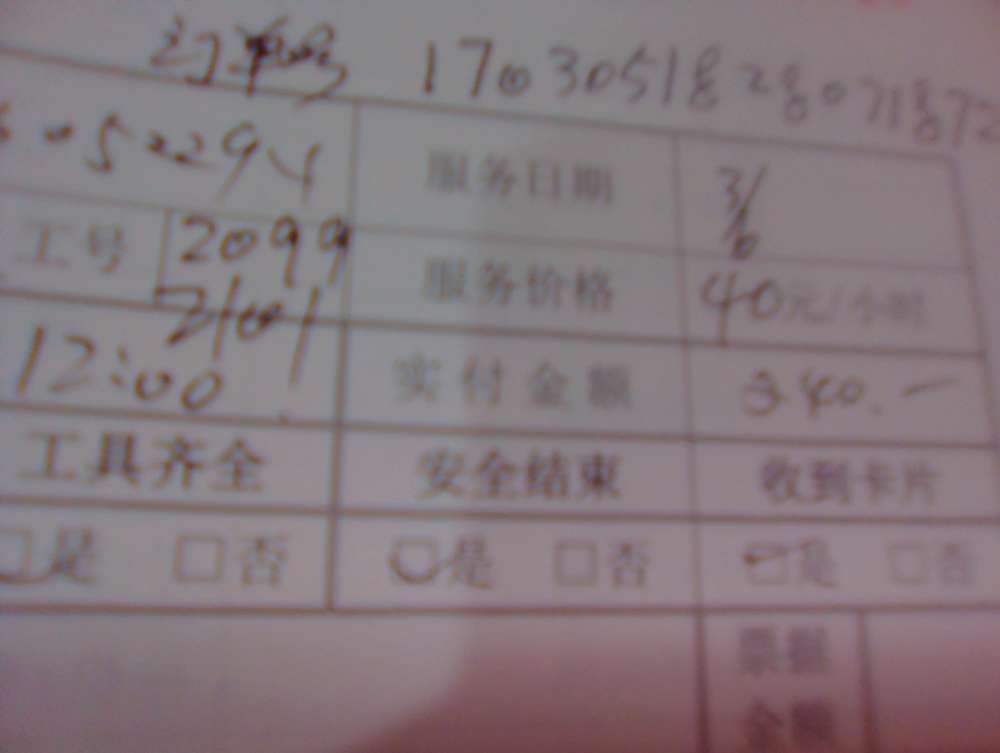 订单号 170305188280718872
6052294 服务日期 3/6
工号 2099 服务价格 40元/小时
2101
12:00 实付金额 240.—
工具齐全 安全结束 收到卡片
□是 □否 □是 □否 □是 □否
票据
金额